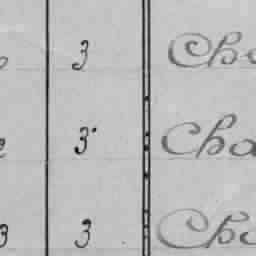 3 Cha
3 Cha
3 3 Cha